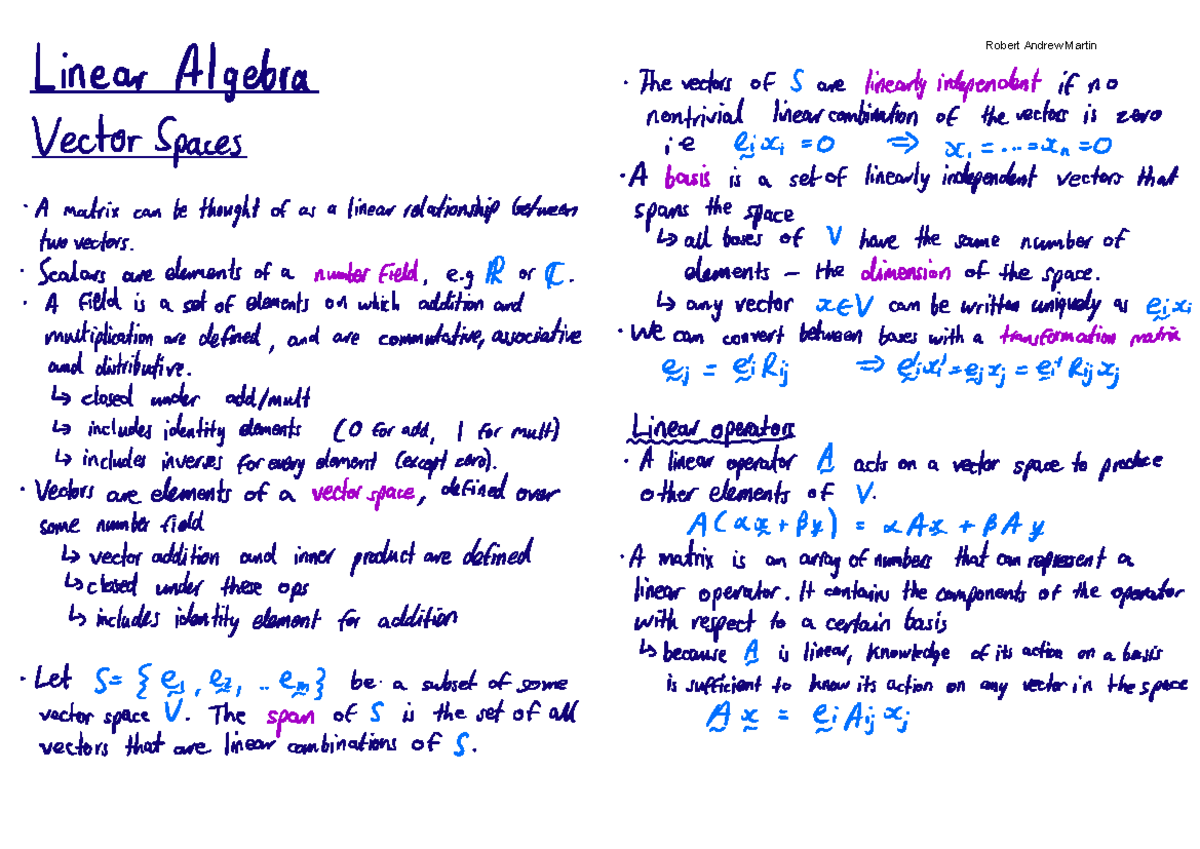 Linear Algebra
Vector Spaces
· A matrix can be thought of as a linear relationship between
two vectors.
· Scalars are elements of a number field, e.g ℝ or ℂ.
· A field is a set of elements on which addition and
multiplication are defined, and are commutative, associative
and distributive.
↳ closed under add/mult
↳ includes identity elements (0 for add, 1 for mult)
↳ includes inverses for every element (except zero).
· Vectors are elements of a vector space, defined over
some number field
↳ vector addition and inner product are defined
↳ closed under these ops
↳ includes identity element for addition
· Let S = { ḛ₁, ḛ₂, .. ḛₘ} be a subset of some
vector space V. The span of S is the set of all
vectors that are linear combinations of S.
Robert Andrew Martin
· The vectors of S are linearly independent if no
nontrivial linear combination of the vectors is zero
i.e ḛᵢxᵢ = 0 ⇒ x₁ = ... = xₙ = 0
· A basis is a set of linearly independent vectors that
spans the space
↳ all bases of V have the same number of
elements – the dimension of the space.
↳ any vector x∈V can be written uniquely as ḛᵢxᵢ
· We can convert between bases with a transformation matrix
ḛⱼ = ḛ'ᵢRᵢⱼ ⇒ ḛ'ᵢx'ᵢ = ḛⱼxⱼ = ḛᵢ'Rᵢⱼxⱼ
Linear operators
· A linear operator A̰ acts on a vector space to produce
other elements of V.
A(αx̰ + βy̰) = αAx̰ + βAy̰
· A matrix is an array of numbers that can represent a
linear operator. It contains the components of the operator
with respect to a certain basis
↳ because A̰ is linear, knowledge of its action on a basis
is sufficient to know its action on any vector in the space
A̰ x̰ = ḛᵢAᵢⱼxⱼ